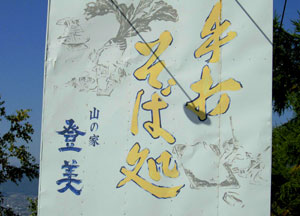 手打
そば処
山の家
登美